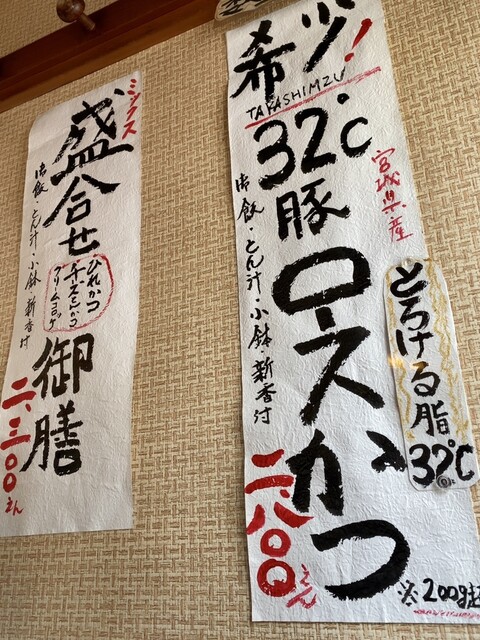 希少!
TAKASHIMIZU
32℃
豚
ロースかつ
宮城県産
御飯・とん汁・小鉢・新香付
とろける脂
32℃
二、八〇〇えん
※200g
ミックス
盛合せ
ひれかつ
チーズとんかつ
クリームコロッケ
御膳
御飯・とん汁・小鉢・新香付
二、三〇〇えん